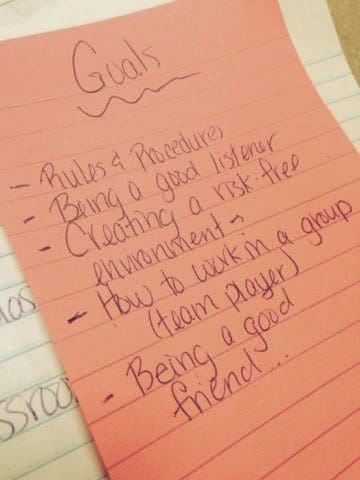 Goals
- Rules & Procedures
- Being a good listener
- Creating a risk-free
environment
- How to work in a group
(team player)
- Being a good
friend...